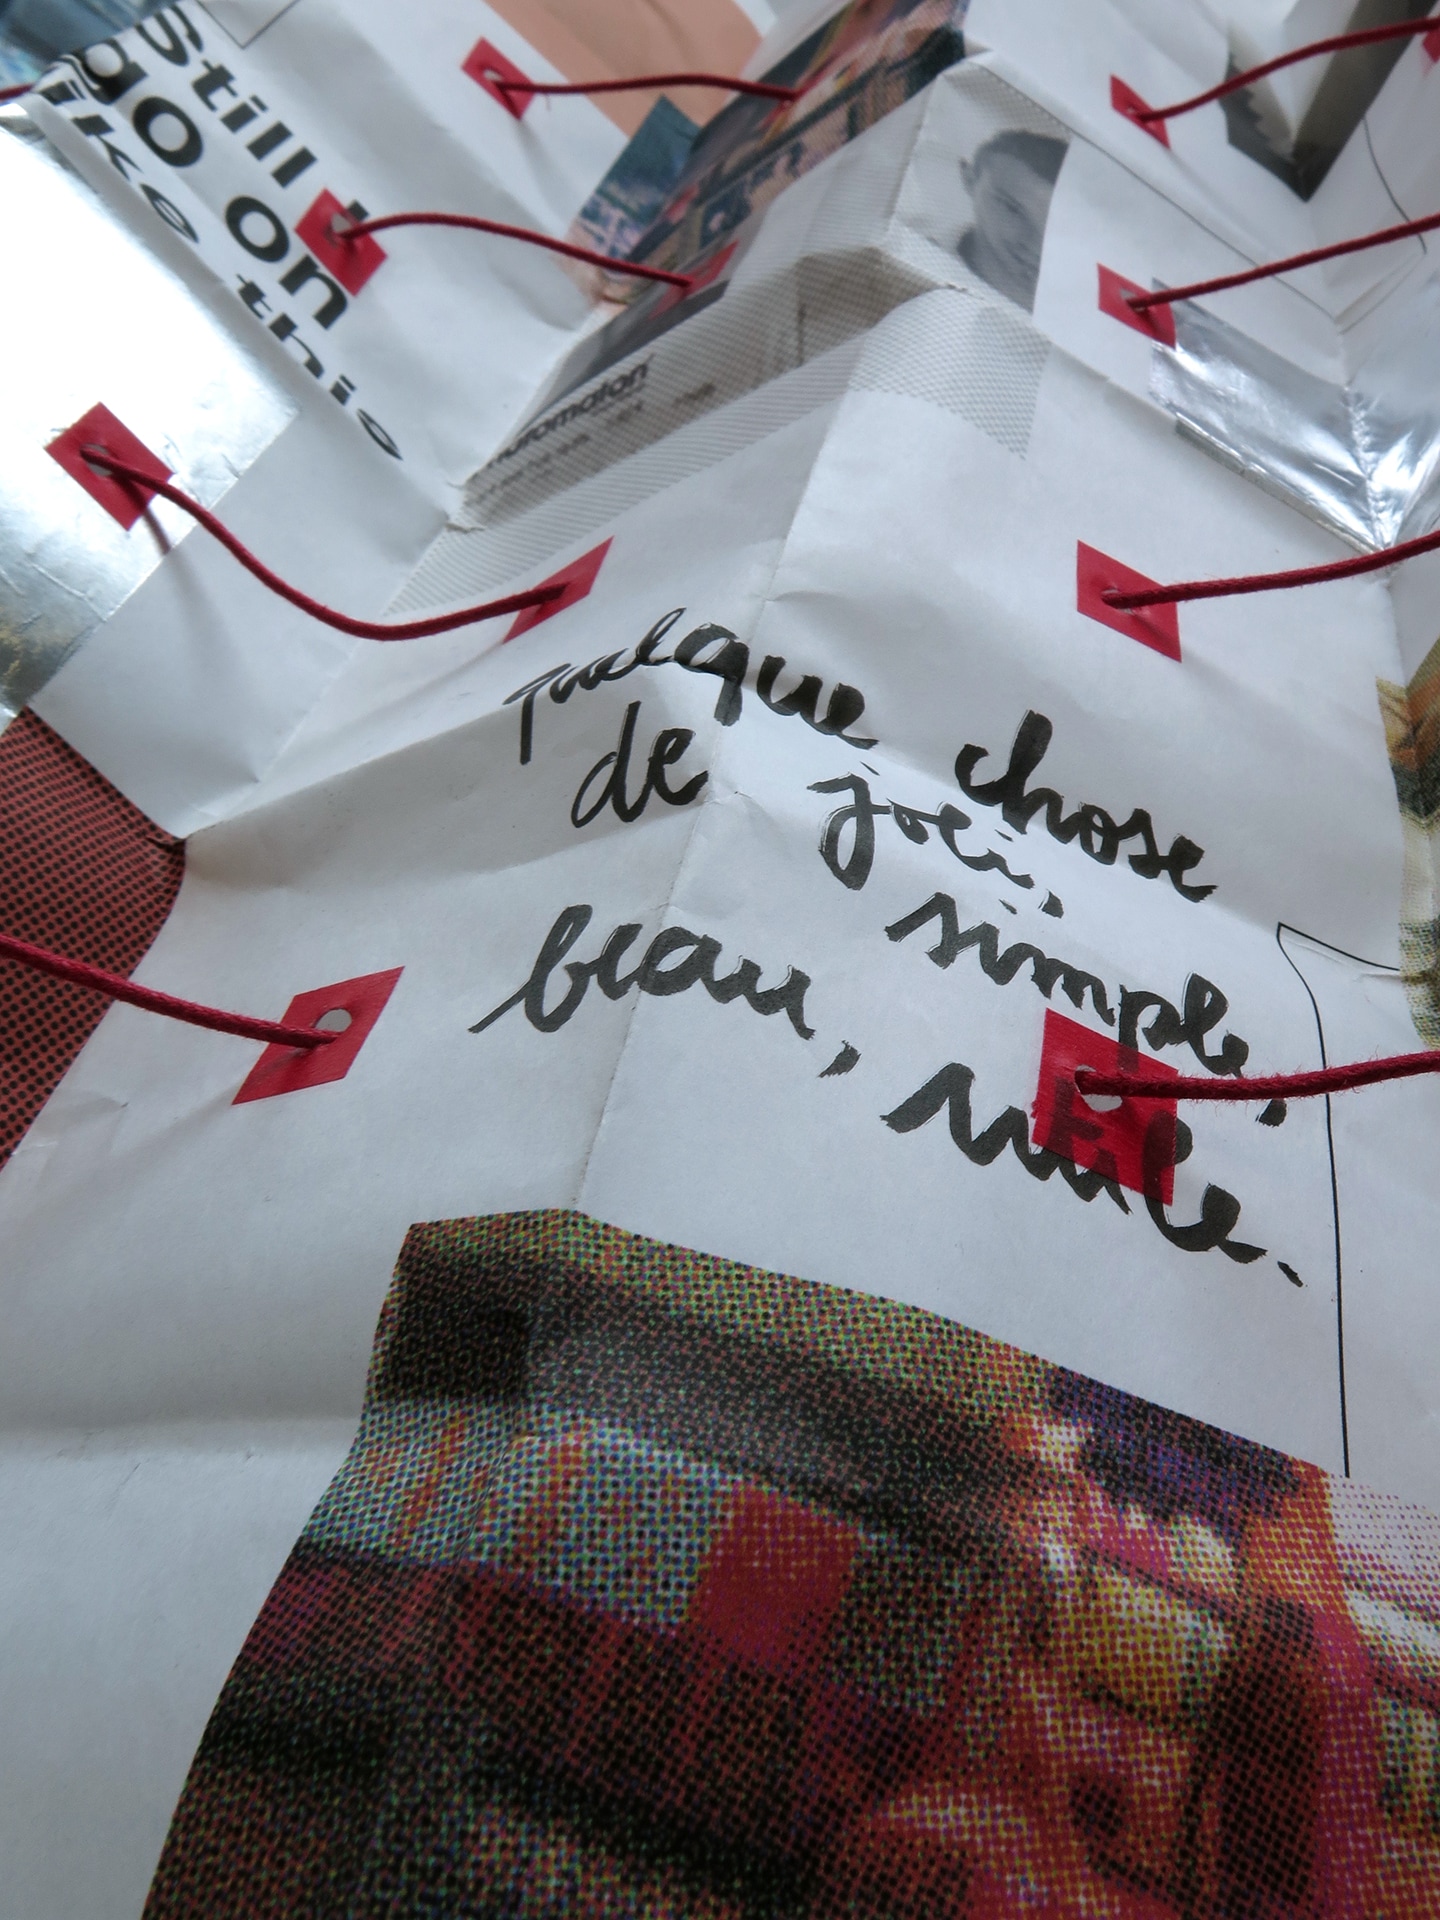 Still I
go on
like this
quelque chose
de joli,
simple,
beau, utile.